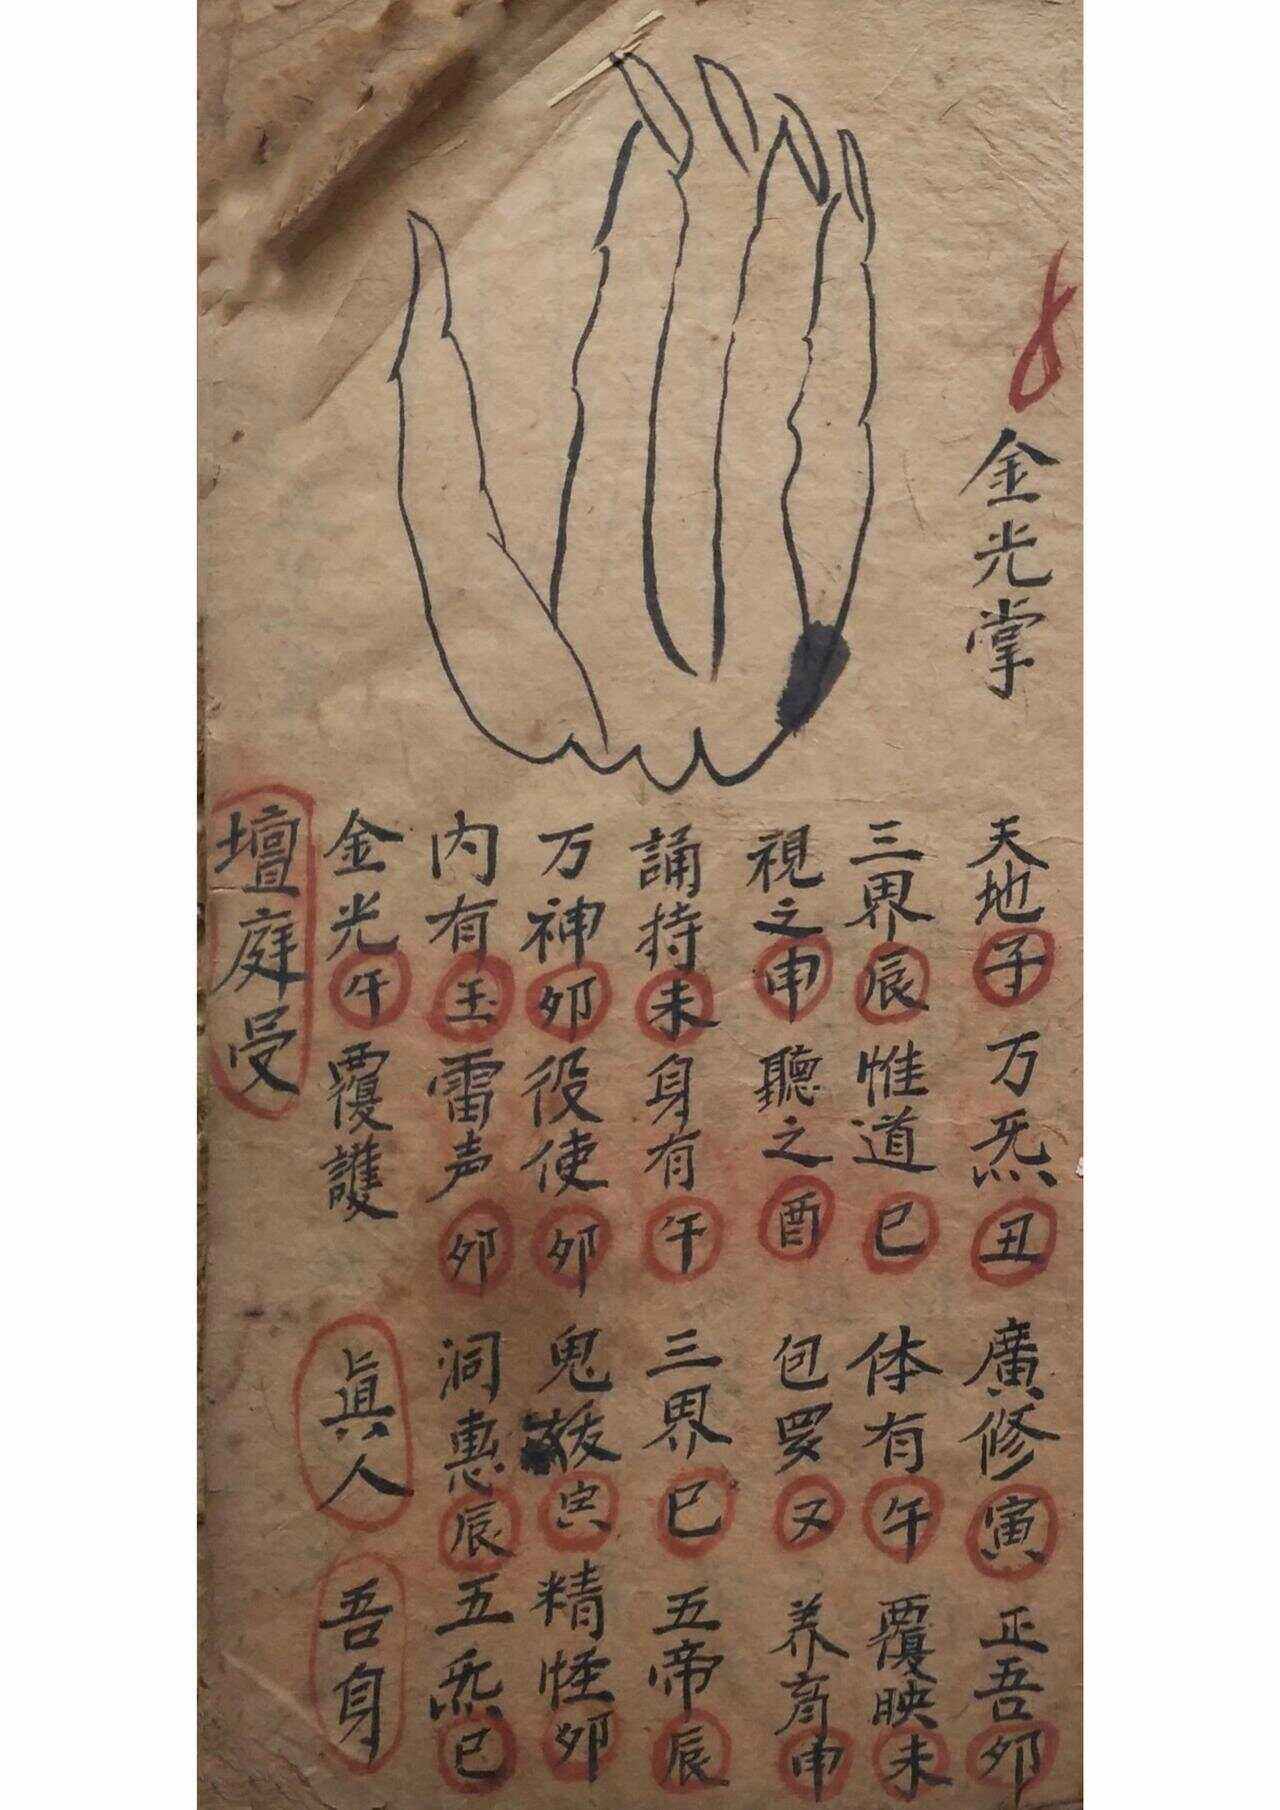 金光掌
天地子万炁丑廣修寅正吾卯
三界辰惟道巳体有午覆映未
視之申聽之酉包罗又养育申
誦持未身有午三界巳五帝辰
万神卯役使卯鬼㚒寅精怪卯
内有玉雷声卯洞惠辰五炁巳
金光午覆護真人吾身
壇庭受